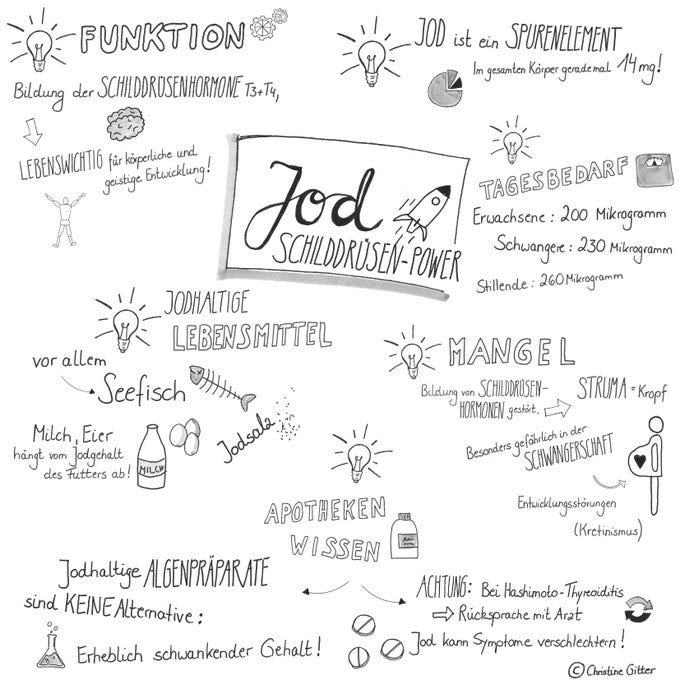 FUNKTION
Bildung der SCHILDDRÜSENHORMONE T3+T4,
LEBENSWICHTIG für körperliche und
geistige Entwicklung!
JOD ist ein SPURENELEMENT
Im gesamten Körper gerade mal 14mg!
Jod
SCHILDDRÜSEN-POWER
TAGESBEDARF
Erwachsene: 200 Mikrogramm
Schwangere: 230 Mikrogramm
Stillende: 260 Mikrogramm
JODHALTIGE
LEBENSMITTEL
vor allem
Seefisch
Milch, Eier
hängt vom Jodgehalt
des Futters ab!
MILCH
Jodsalz
MANGEL
Bildung von SCHILDDRÜSEN-
HORMONEN gestört.
STRUMA = Kropf
Besonders gefährlich in der
SCHWANGERSCHAFT
Entwicklungsstörungen
(Kretinismus)
APOTHEKEN
WISSEN
Jodhaltige ALGENPRÄPARATE
sind KEINE Alternative:
Erheblich schwankender Gehalt!
ACHTUNG: Bei Hashimoto-Thyreoiditis
Rücksprache mit Arzt
Jod kann Symptome verschlechtern!
© Christine Gitter